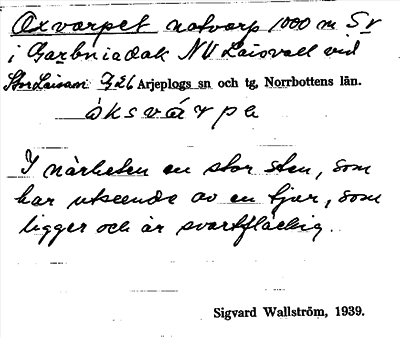 Oxvarpet notvarp 1000 m SV
i Garbniadak NV Laisvall vid
Stor Laisan. Arjeplogs sn och tg, Norrbottens län.
òksvárpe
I närheten en stor sten, som
har utseende av en tjur, som
ligger och är svartfläckig.
Sigvard Wallström, 1939.